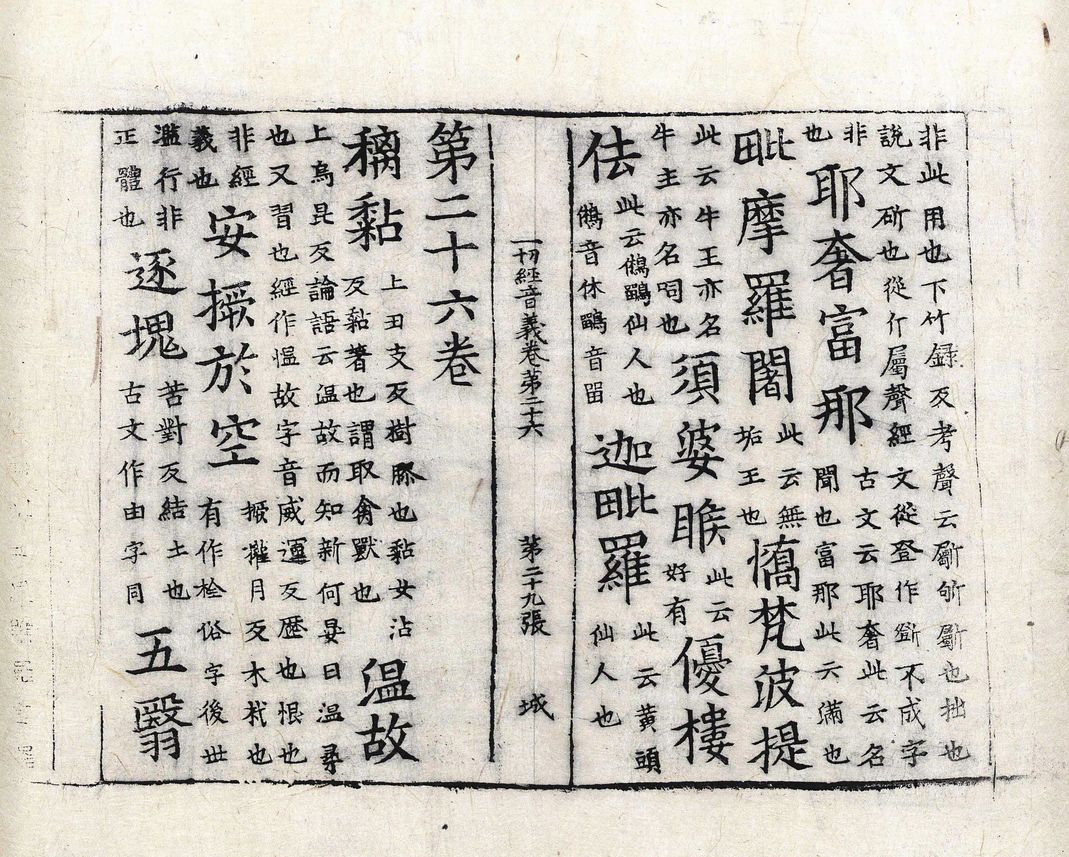 非此用也下竹録反考聲云斸斫斸也拙也
說文斫也從斤屬聲經文從登作斵不成字
非也耶奢富那古文云耶奢此云名聞也富那此云滿也
毗摩羅闍此云無垢王也憍梵波提
此云牛王亦名牛主亦名呞也須婆睺此云好有優樓
佉此云鵂鶹仙人也鵂音休鶹音留迦毗羅此云黄頭仙人也
一切經音義卷第二十六 第二十九張 城
第二十六卷
黐黏上丑支反樹膠也黏女沾反黏著也謂取禽獸也温故
上烏昆反論語云温故而知新何晏曰温尋
也又習也經作愠故字音威運反歷也恨也
非經義也安撅於空撅權月反木杙也有作栓俗字後世
濫行非正體也逐塊苦對反結土也古文作甶字同五翳